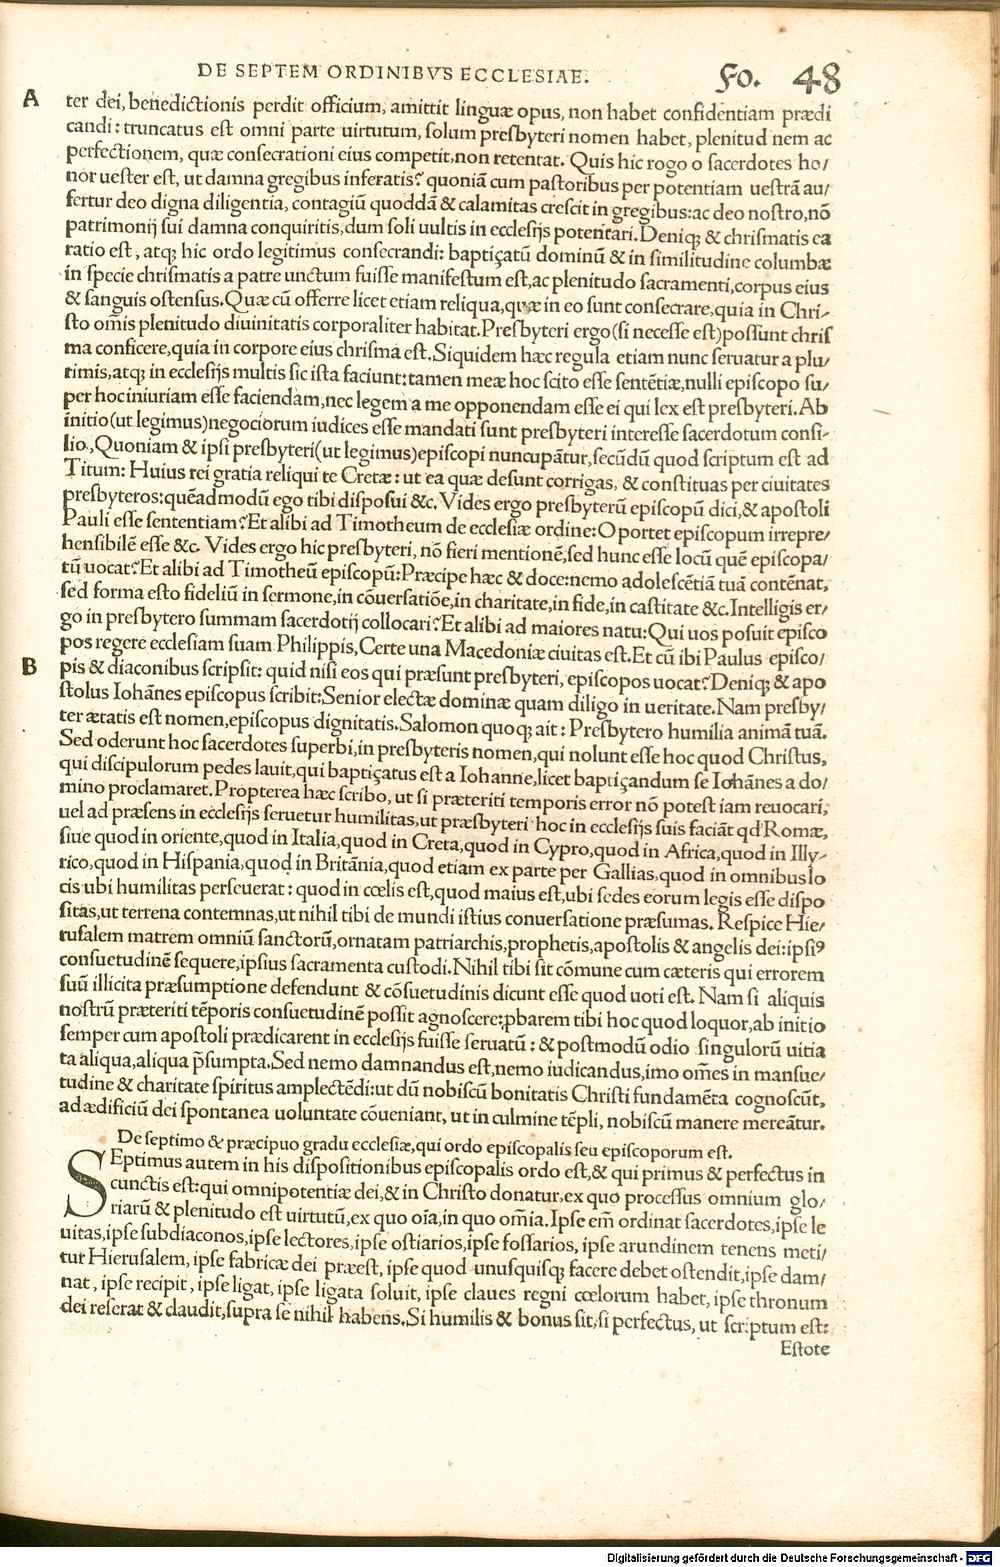 DE SEPTEM ORDINIBVS ECCLESIAE. Fo. 48
A ter dei, benedictionis perdit officium, amittit linguæ opus, non habet confidentiam prædi
candi: truncatus est omni parte uirtutum, solum presbyteri nomen habet, plenitud nem ac
perfectionem, quæ consecrationi eius competit, non retentat. Quis hic rogo o sacerdotes ho/
nor uester est, ut damna gregibus inferatis? quoniã cum pastoribus per potentiam uestrã au/
fertur deo digna diligentia, contagiũ quoddã & calamitas crescit in gregibus: ac deo nostro, nõ
patrimonij sui damna conquiritis, dum soli uultis in ecclesijs potentari. Deniq; & chrismatis ea
ratio est, atq; hic ordo legitimus consecrandi: baptiçatũ dominũ & in similitudine columbæ
in specie chrismatis a patre unctum fuisse manifestum est, ac plenitudo sacramenti, corpus eius
& sanguis ostensus. Quæ cũ offerre licet etiam reliqua, quæ in eo sunt consecrare, quia in Chri/
sto om̃is plenitudo diuinitatis corporaliter habitat. Presbyteri ergo (si necesse est) possunt chris
ma conficere, quia in corpore eius chrisma est. Siquidem hæc regula etiam nunc seruatur a plu/
rimis, atq; in ecclesijs multis sic ista faciunt: tamen meæ hoc scito esse sentẽtiæ, nulli episcopo su/
per hoc iniuriam esse faciendam, nec legem a me opponendam esse ei qui lex est presbyteri. Ab
initio (ut legimus) negociorum iudices esse mandati sunt presbyteri interesse sacerdotum consi/
lio. Quoniam & ipsi presbyteri (ut legimus) episcopi nuncupãtur, secũdũ quod scriptum est ad
Titum: Huius rei gratia reliqui te Cretæ: ut ea quæ desunt corrigas, & constituas per ciuitates
presbyteros: quẽadmodũ ego tibi disposui &c. Vides ergo presbyterũ episcopũ dici, & apostoli
Pauli esse sententiam? Et alibi ad Timotheum de ecclesiæ ordine: Oportet episcopum irrepre/
hensibilẽ esse &c. Vides ergo hic presbyteri, nõ fieri mentionẽ, sed hunc esse locũ quẽ episcopa/
tũ uocat? Et alibi ad Timotheũ episcopũ: Præcipe hæc & doce: nemo adolescẽtiã tuã contẽnat,
sed forma esto fideliũ in sermone, in cõuersatiõe, in charitate, in fide, in castitate &c. Intelligis er/
go in presbytero summam sacerdotij collocari? Et alibi ad maiores natu: Qui uos posuit episco
pos regere ecclesiam suam Philippis, Certe una Macedoniæ ciuitas est. Et cũ ibi Paulus episco/
B pis & diaconibus scripsit: quid nisi eos qui præsunt presbyteri, episcopos uocat? Deniq; & apo
stolus Iohãnes episcopus scribit: Senior electæ dominæ quam diligo in ueritate. Nam presby/
ter ætatis est nomen, episcopus dignitatis. Salomon quoq; ait: Presbytero humilia animã tuã.
Sed oderunt hoc sacerdotes superbi, in presbyteris nomen, qui nolunt esse hoc quod Christus,
qui discipulorum pedes lauit, qui baptiçatus est a Iohanne, licet baptiçandum se Iohãnes a do/
mino proclamaret. Propterea hæc scribo, ut si præteriti temporis error nõ potest iam reuocari,
uel ad præsens in ecclesijs seruetur humilitas, ut præsbyteri hoc in ecclesijs suis faciãt qd' Romæ,
siue quod in oriente, quod in Italia, quod in Creta, quod in Cypro, quod in Africa, quod in Illy/
rico, quod in Hispania, quod in Britãnia, quod etiam ex parte per Gallias, quod in omnibus lo
cis ubi humilitas perseuerat: quod in cœlis est, quod maius est, ubi sedes eorum legis esse dispo
sitas, ut terrena contemnas, ut nihil tibi de mundi istius conuersatione præsumas. Respice Hie/
rusalem matrem omniũ sanctorũ, ornatam patriarchis, prophetis, apostolis & angelis dei: ipsiꝰ
consuetudinẽ sequere, ipsius sacramenta custodi. Nihil tibi sit cõmune cum cæteris qui errorem
suũ illicita præsumptione defendunt & cõsuetudinis dicunt esse quod uoti est. Nam si aliquis
nostrũ præteriti tẽporis consuetudinẽ possit agnoscere: ꝓbarem tibi hoc quod loquor, ab initio
semper cum apostoli prædicarent in ecclesijs fuisse seruatũ: & postmodũ odio singulorũ uitia
ta aliqua, aliqua p̃sumpta. Sed nemo damnandus est, nemo iudicandus, imo om̃es in mansue/
tudine & charitate spiritus amplectẽdi: ut dũ nobiscũ bonitatis Christi fundamẽta cognoscũt,
ad ædificiũ dei spontanea uoluntate cõueniant, ut in culmine tẽpli, nobiscũ manere mereãtur.
De septimo & præcipuo gradu ecclesiæ, qui ordo episcopalis seu episcoporum est.
SEptimus autem in his dispositionibus episcopalis ordo est, & qui primus & perfectus in
cunctis est: qui omnipotentiæ dei, & in Christo donatur, ex quo processus omnium glo/
riarũ & plenitudo est uirtutũ, ex quo oĩa, in quo om̃ia. Ipse em̃ ordinat sacerdotes, ipse le
uitas, ipse subdiaconos, ipse lectores, ipse ostiarios, ipse fossarios, ipse arundinem tenens meti/
tur Hierusalem, ipse fabricæ dei præest, ipse quod unusquisq; facere debet ostendit, ipse dam/
nat, ipse recipit, ipse ligat, ipse ligata soluit, ipse claues regni cœlorum habet, ipse thronum
dei reserat & claudit, supra se nihil habens. Si humilis & bonus sit, si perfectus, ut scriptum est:
Estote
Digitalisierung gefördert durch die Deutsche Forschungsgemeinschaft - DFG